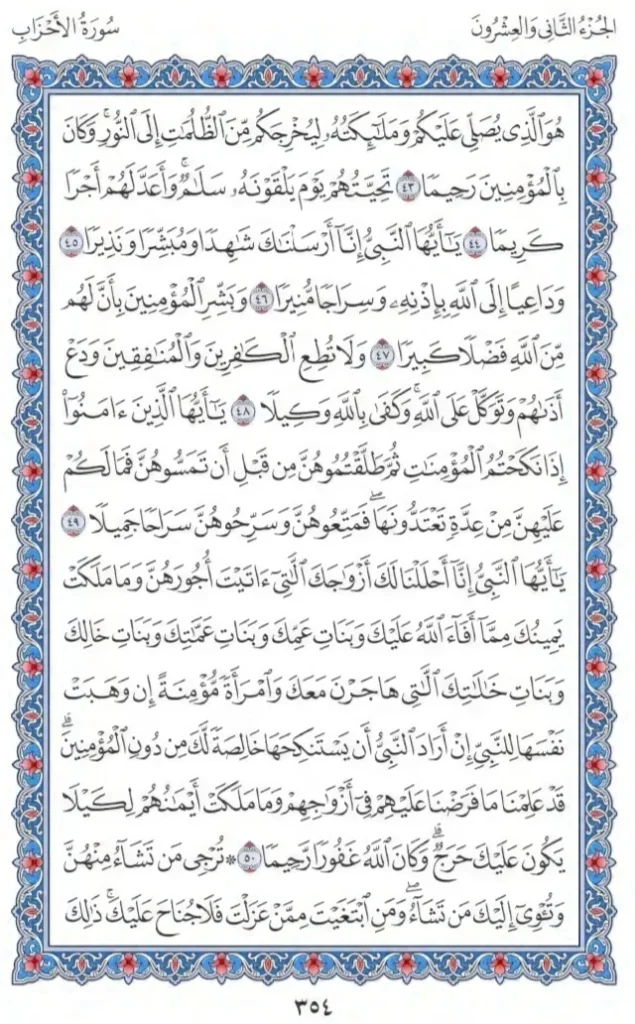 الجُزْءُ الثَّانِي وَالعِشْرُونَ
سُورَةُ الأَحْزَابِ
هُوَ ٱلَّذِى يُصَلِّى عَلَيْكُمْ وَمَلَٰٓئِكَتُهُۥ لِيُخْرِجَكُم مِّنَ ٱلظُّلُمَٰتِ إِلَى ٱلنُّورِ ۚ وَكَانَ
بِٱلْمُؤْمِنِينَ رَحِيمًا ٤٣ تَحِيَّتُهُمْ يَوْمَ يَلْقَوْنَهُۥ سَلَٰمٌ ۚ وَأَعَدَّ لَهُمْ أَجْرًا
كَرِيمًا ٤٤ يَٰٓأَيُّهَا ٱلنَّبِىُّ إِنَّآ أَرْسَلْنَٰكَ شَٰهِدًا وَمُبَشِّرًا وَنَذِيرًا ٤٥
وَدَاعِيًا إِلَى ٱللَّهِ بِإِذْنِهِۦ وَسِرَاجًا مُّنِيرًا ٤٦ وَبَشِّرِ ٱلْمُؤْمِنِينَ بِأَنَّ لَهُم
مِّنَ ٱللَّهِ فَضْلًا كَبِيرًا ٤٧ وَلَا تُطِعِ ٱلْكَٰفِرِينَ وَٱلْمُنَٰفِقِينَ وَدَعْ
أَذَىٰهُمْ وَتَوَكَّلْ عَلَى ٱللَّهِ ۚ وَكَفَىٰ بِٱللَّهِ وَكِيلًا ٤٨ يَٰٓأَيُّهَا ٱلَّذِينَ ءَامَنُوٓا۟
إِذَا نَكَحْتُمُ ٱلْمُؤْمِنَٰتِ ثُمَّ طَلَّقْتُمُوهُنَّ مِن قَبْلِ أَن تَمَسُّوهُنَّ فَمَا لَكُمْ
عَلَيْهِنَّ مِنْ عِدَّةٍ تَعْتَدُّونَهَا ۖ فَمَتِّعُوهُنَّ وَسَرِّحُوهُنَّ سَرَاحًا جَمِيلًا ٤٩
يَٰٓأَيُّهَا ٱلنَّبِىُّ إِنَّآ أَحْلَلْنَا لَكَ أَزْوَٰجَكَ ٱلَّٰتِىٓ ءَاتَيْتَ أُجُورَهُنَّ وَمَا مَلَكَتْ
يَمِينُكَ مِمَّآ أَفَآءَ ٱللَّهُ عَلَيْكَ وَبَنَاتِ عَمِّكَ وَبَنَاتِ عَمَّٰتِكَ وَبَنَاتِ خَالِكَ
وَبَنَاتِ خَٰلَٰتِكَ ٱلَّٰتِى هَاجَرْنَ مَعَكَ وَٱمْرَأَةً مُّؤْمِنَةً إِن وَهَبَتْ
نَفْسَهَا لِلنَّبِىِّ إِنْ أَرَادَ ٱلنَّبِىُّ أَن يَسْتَنكِحَهَا خَالِصَةً لَّكَ مِن دُونِ ٱلْمُؤْمِنِينَ ۗ
قَدْ عَلِمْنَا مَا فَرَضْنَا عَلَيْهِمْ فِىٓ أَزْوَٰجِهِمْ وَمَا مَلَكَتْ أَيْمَٰنُهُمْ لِكَيْلَا
يَكُونَ عَلَيْكَ حَرَجٌ ۗ وَكَانَ ٱللَّهُ غَفُورًا رَّحِيمًا ٥٠ * تُرْجِى مَن تَشَآءُ مِنْهُنَّ
وَتُـْٔوِىٓ إِلَيْكَ مَن تَشَآءُ ۖ وَمَنِ ٱبْتَغَيْتَ مِمَّنْ عَزَلْتَ فَلَا جُنَاحَ عَلَيْكَ ۚ ذَٰلِكَ
٣٥٤